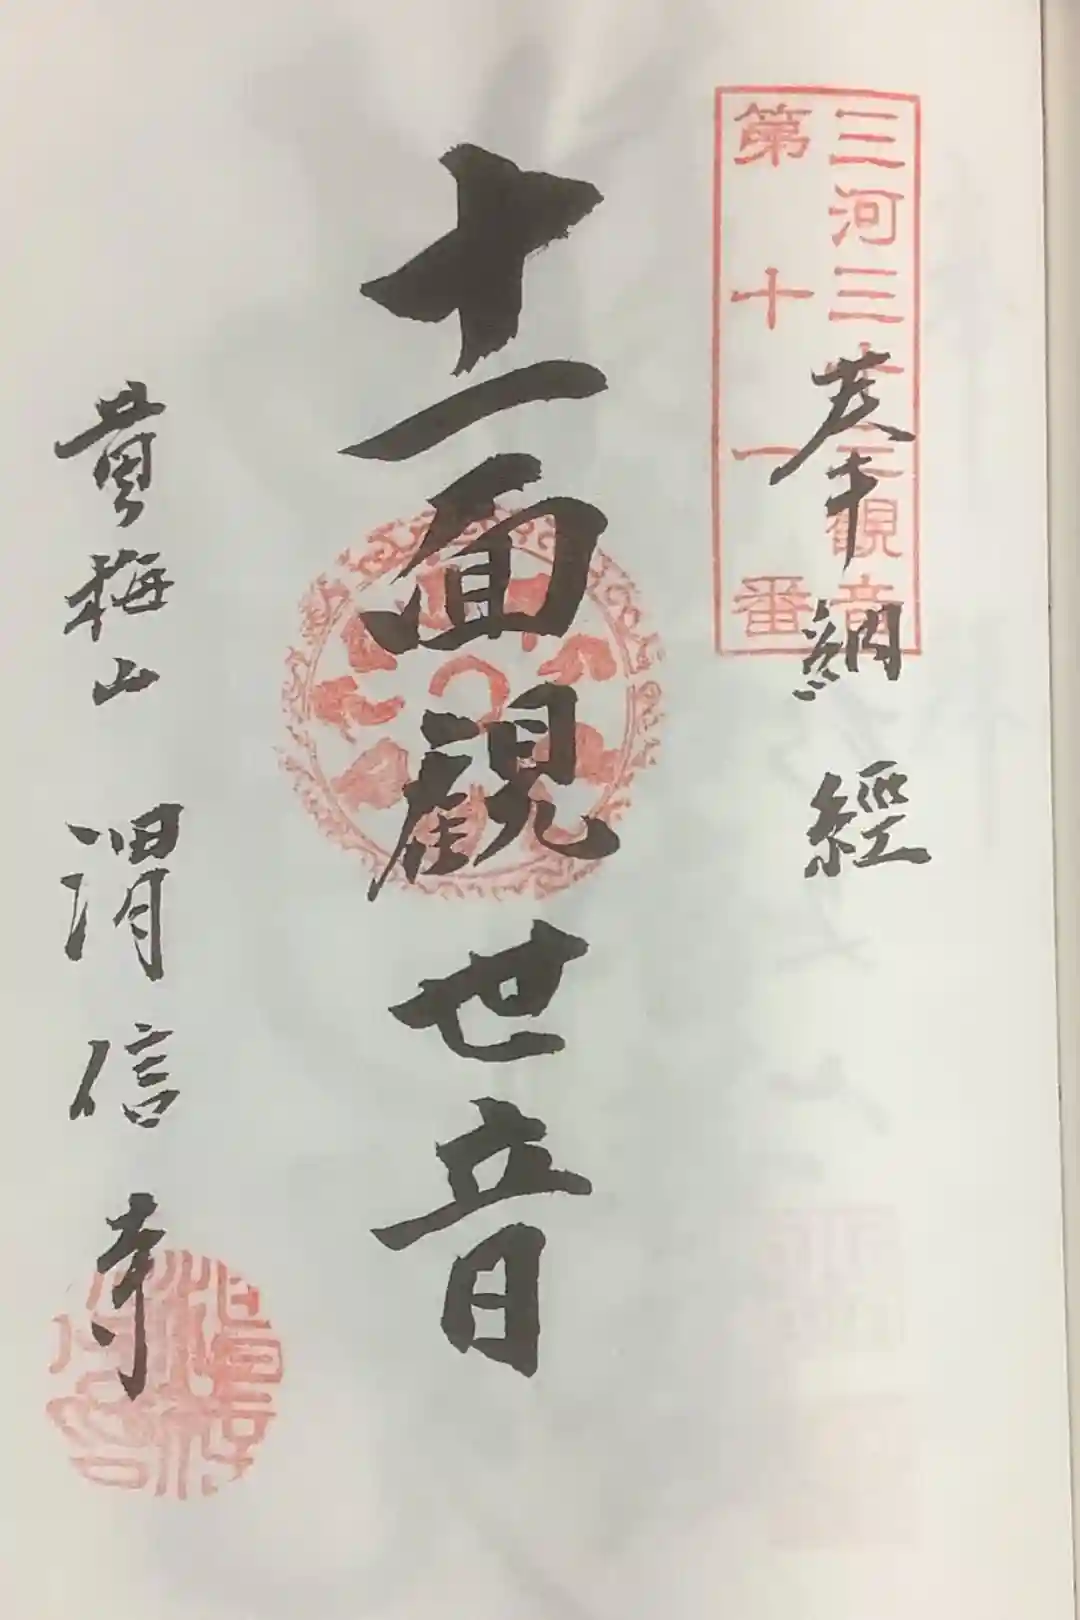 三河三十三観音
第十一番
奉納経
十一面観世音
黄梅山 渭信寺